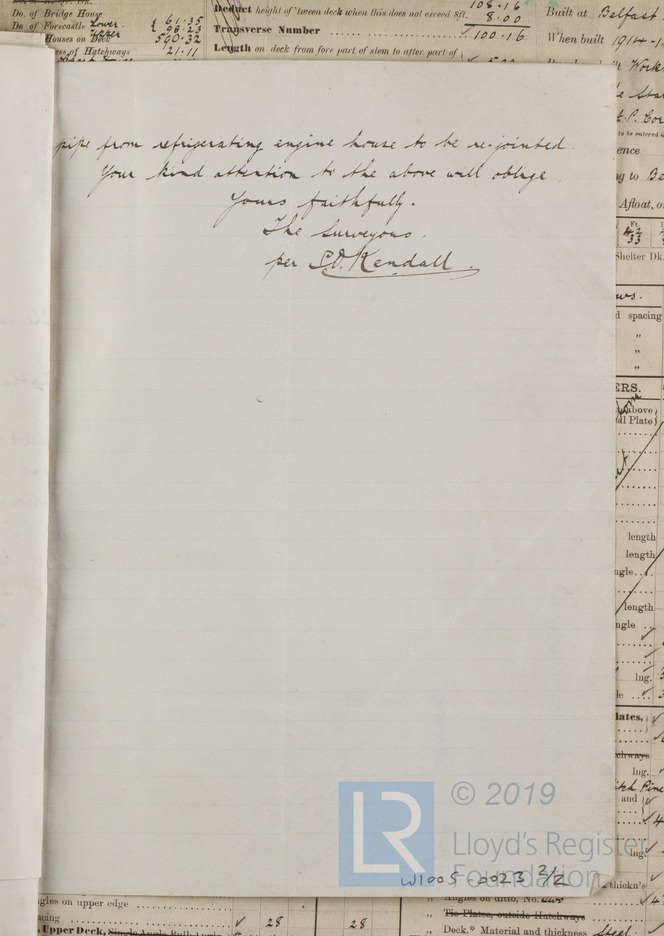 Do. of Bridge House
Do. of Forecastle Lower. 61.35
Upper 98.23
Houses on Deck 500.32
ess of Hatchways 21.11
108.16
Deduct height of 'tween deck when this does not exceed 8ft. 8.00
Transverse Number 100.16
Length on deck from fore part of stem to after part of
Built at Belfast
When built 1914-1
Work
P. Cor
to be entered
ence
ng to Be
Afloat, o
Ft.
Shelter Dk.
ws.
d spacing
"
"
"
ERS.
above
all Plate
length
length
ngle
length
ngle
lng.
le
lates,
hways
lng.
itch Pine
and
lng.
thickn's
pipe from refrigerating engine house to be re-jointed
Your kind attention to the above will oblige
Yours faithfully.
The Surveyors.
per S.O. Kendall.
LR
© 2019
Lloyd's Register
Foundation
W1005-0023 2/2
ngles on upper edge
acing 28 28
Upper Deck,
Angles on ditto, No.
" Tie Plates, outside Hatchways
" Deck.* Material and thickness Steel.